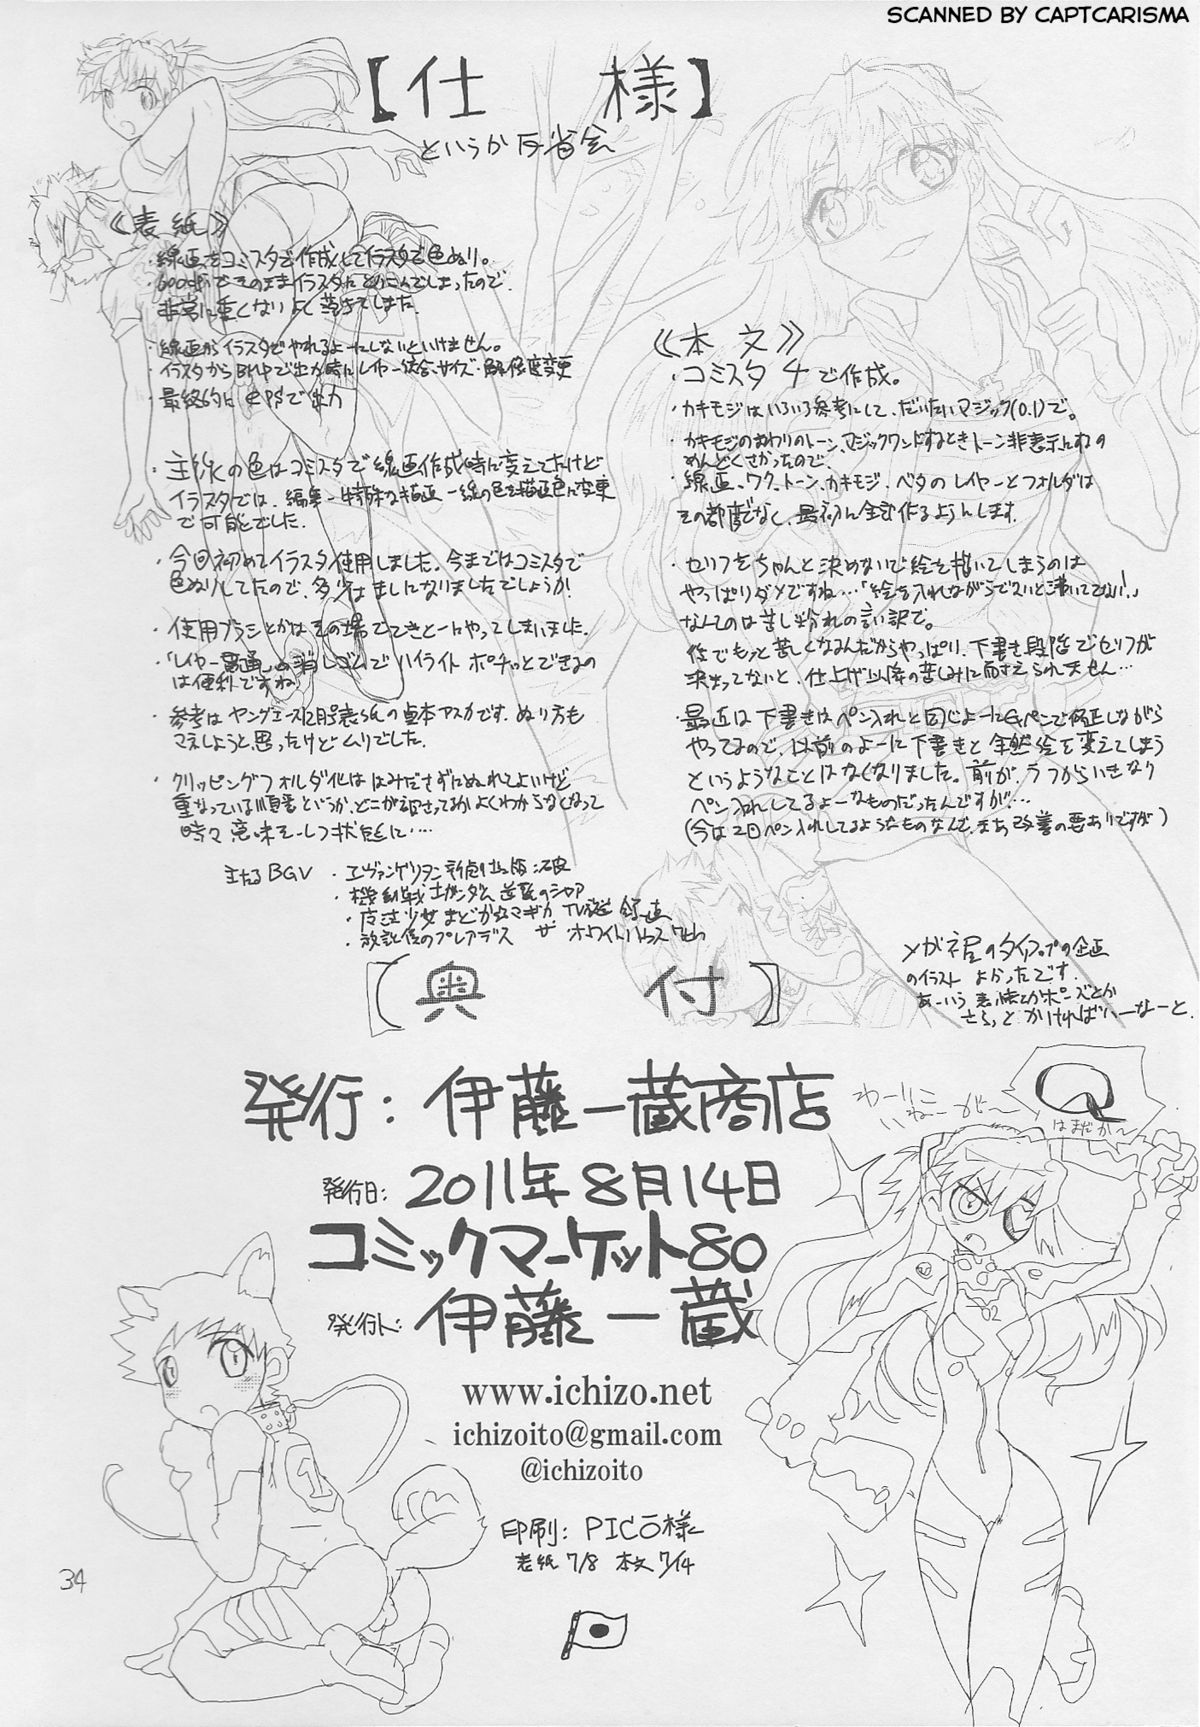 SCANNED BY CAPTCARISMA
【仕様】
というか反省会
《表紙》
・線画をコミスタで作成してイラスタで色ぬり。
・600dpiでそのままイラスタにとりこんでしまったので、
非常に重くないよく
・線画からイラスタでやれるよーにしないといけません。
・イラスタからBMPで出力時にレイヤー統合、サイズ・解像度変更
・最終的に EPSで出力
・主線の色はコミスタで線画作成時に変えてたけど、
イラスタでは、編集→特殊な描画→線の色を描画色に変更
で可能でした.
・今回初めてイラスタ使用しました。今まではコミスタで
色ぬりしてたので、多少はましになりましたでしょうか!
・使用ブラシとかはその場でてきとーにやってしまいました.
・「レイヤー貫通」の消しゴムでハイライト ポチっとできるの
は便利ですね
・参考は ヤングエース 表紙の貞本アスカです. ぬり方も
マネしようと思ったけどムリでした.
・クリッピングフォルダ化は はみださずにぬれてよいけど
重なっている順番というか、どこが かよくわからなくなって
時々 意味ネーし状態に….
主たるBGV ・エヴァンゲリヲン新劇場版:破
・機動戦士ガンダム 逆襲のシャア
・魔法少女まどか☆マギカ TV
・放課後のプレアデス ザ・ホワイトハウス
《本文》
・コミスタ 4 で作成。
・カキモジはいろいろ参考にして、だいたいマジック(0.1)で。
・カキモジのまわりのトーン、マジックワンドするときトーン非表示にするの
めんどくさかったので、
・線画、ワク、トーン、カキモジ、ベタのレイヤーとフォルダは
その都度でなく、最初に全部作るようにします.
・セリフをちゃんと決めないで絵を描いてしまうのは
やっぱりダメですね…「絵を入れながらでないと沸いてこない!」
なんてのは苦し紛れの言い訳で。
後でもっと苦しくなるんだからやっぱり、下書き段階でセリフが
決まってないと、仕上げ以降の苦しみに耐えられません…
・最近は下書きはペン入れと同じよーにGペンで修正しながら
やってるので、以前のよーに下書きと全然絵を変えてしまう
というようなことはなくなりました。前が、ラフからいきなり
ペン入れしてるよーなものだったんですが…
(今は2回ペン入れしてるようなものなんで、まあ改善の要ありですが)
メガネ君のタイアップの企画
のイラスト よかったです.
あーいう 表情とかポーズとか
さらっと かければいーなーと.
【奥付】
発行:伊藤一蔵商店
発行日: 2011年8月14日
コミックマーケット80
発行人: 伊藤一蔵
www.ichizo.net
ichizoito@gmail.com
@ichizoito
印刷: PICO様
表紙 7/8 本文 7/14
わーりこ
いねーがー
Q
はまだか〜
1
34